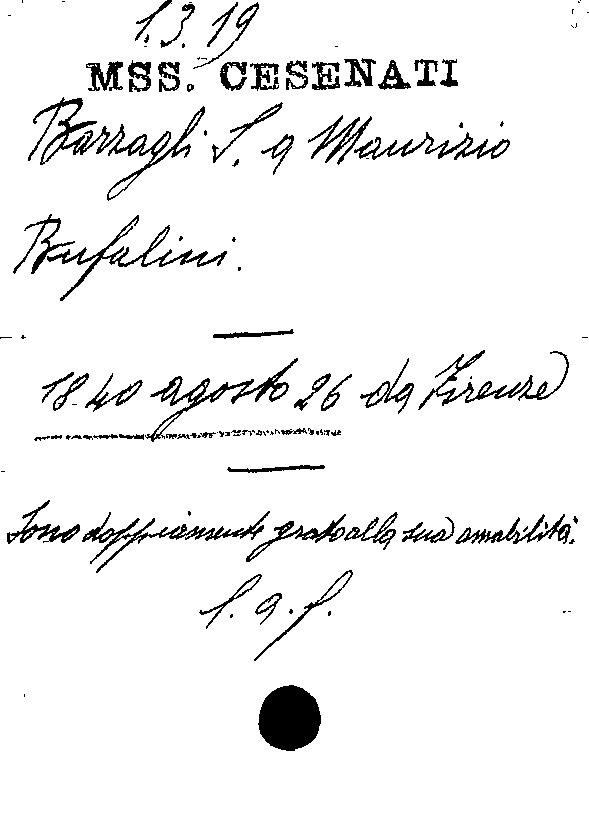 1.3.19
MSS. CESENATI
Barzagli S. a Maurizio
Bufalini.
1840 agosto 26 da Firenze
Sono doppiamente grato alla sua amabilità.
l. a. f.